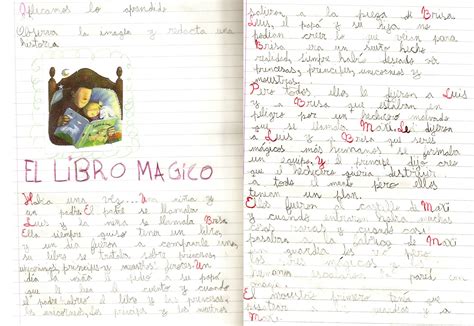 Aplicamos lo aprendido
Observa la imagen y redacta una
historia
EL LIBRO MAGICO
Había una vez... Un niña y
un padre. El padre se llamaba
Luis y la niña se llamaba Brisa
Ella siempre quiso tener un libro,
y un día fueron a comprarle uno,
su libro se trataba sobre princesas,
unicornios, principes y monstruos feroces. Un
día la niña le pidio a su papá
que le lea el cuento y cuando
el padre abrio el libro y las princesas,
los unicornios, los principes y los monstruos
salieron a la pieza de Brisa
Luis, el papá y su hija no
podian creer lo que veían para
Brisa era un sueño hecho
realidad, siempre había deseado ver
princesas, principes, unicornios y
monstruos.
Pero todos ellos le fueron a Luis
y a Brisa que estaban en
peligro por un hechicero malvado
que se llamaba Mati. Le dijeron
a Luis y Brisa que seres
mágicos más humanos se formaba
un equipo. Y el principe dijo creo
que el hechicero quería destruir
a todo el mundo pero ellos
tenían un plan.
Ellos fueron al castillo de Mati
y cuando entraron había muchas
cosas raras y cuando casi
pasaron la de Mati
los guardias
los seres mágicos y
escalaron la pared con
magia.
El monstruo primero tenía que
a unicornios y a
Mati.